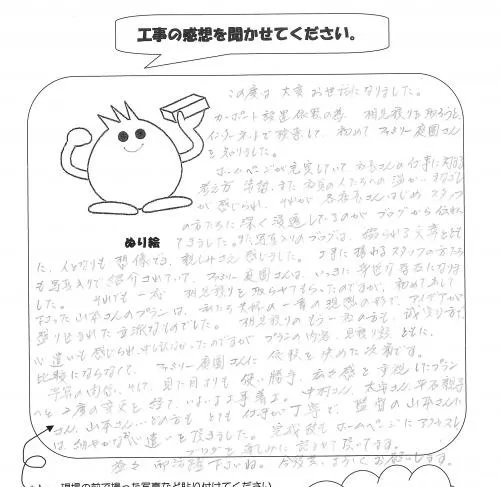 工事の感想を聞かせてください。
この度は大変お世話になりました。
カーポート設置依頼の為、相見積りを取ろうと
インターネットで検索して、初めてファミリー庭園さん
を知りました。
ホームページが充実していて 社長さんの仕事に対する
考え方
が感じられ、それが各店長さんはじめ スタッフ
の方たちに深く浸透しているのがブログから伝わって
きました。また写真入りのブログは、
ぬり絵
た、人となりも想像でき、親しみさえ感じました。工事に携わるスタッフの方たち
も写真入りで紹介されていて、ファミリー庭園さんは、いっきに身近な存在になりま
した。 それでも一応 相見積りを取らせてもらったのですが、初めお会い
した山本さんのプランは、私たち夫婦の一番の理想の形で、アイデアが
盛り込まれた立派なものでした。 相見積りのもう一社の方も、
心遣いも感じられ、申し訳なかったのですが プランの内容、見積り額 ともに、
比較にならなくて、ファミリー庭園さんに 依頼を決めた次第です。
予算の関係、そして、見た目よりも 使い勝手、広さ感を重視したプラン
へと 2度の変更を経て、いよいよ工事着工。中村さん、大平さん、平石親子
さん、山本さん…どの方も とても 仕事が丁寧で、監督の山本さんに
は細やかな心遣いを頂きました。 完成後も ホームページにアクセスし
ブログを楽しみに読ませて頂いてます。
益々 御活躍下さいね。今後共、よろしくお願いします。
現場の前で撮った写真など貼り付けてください